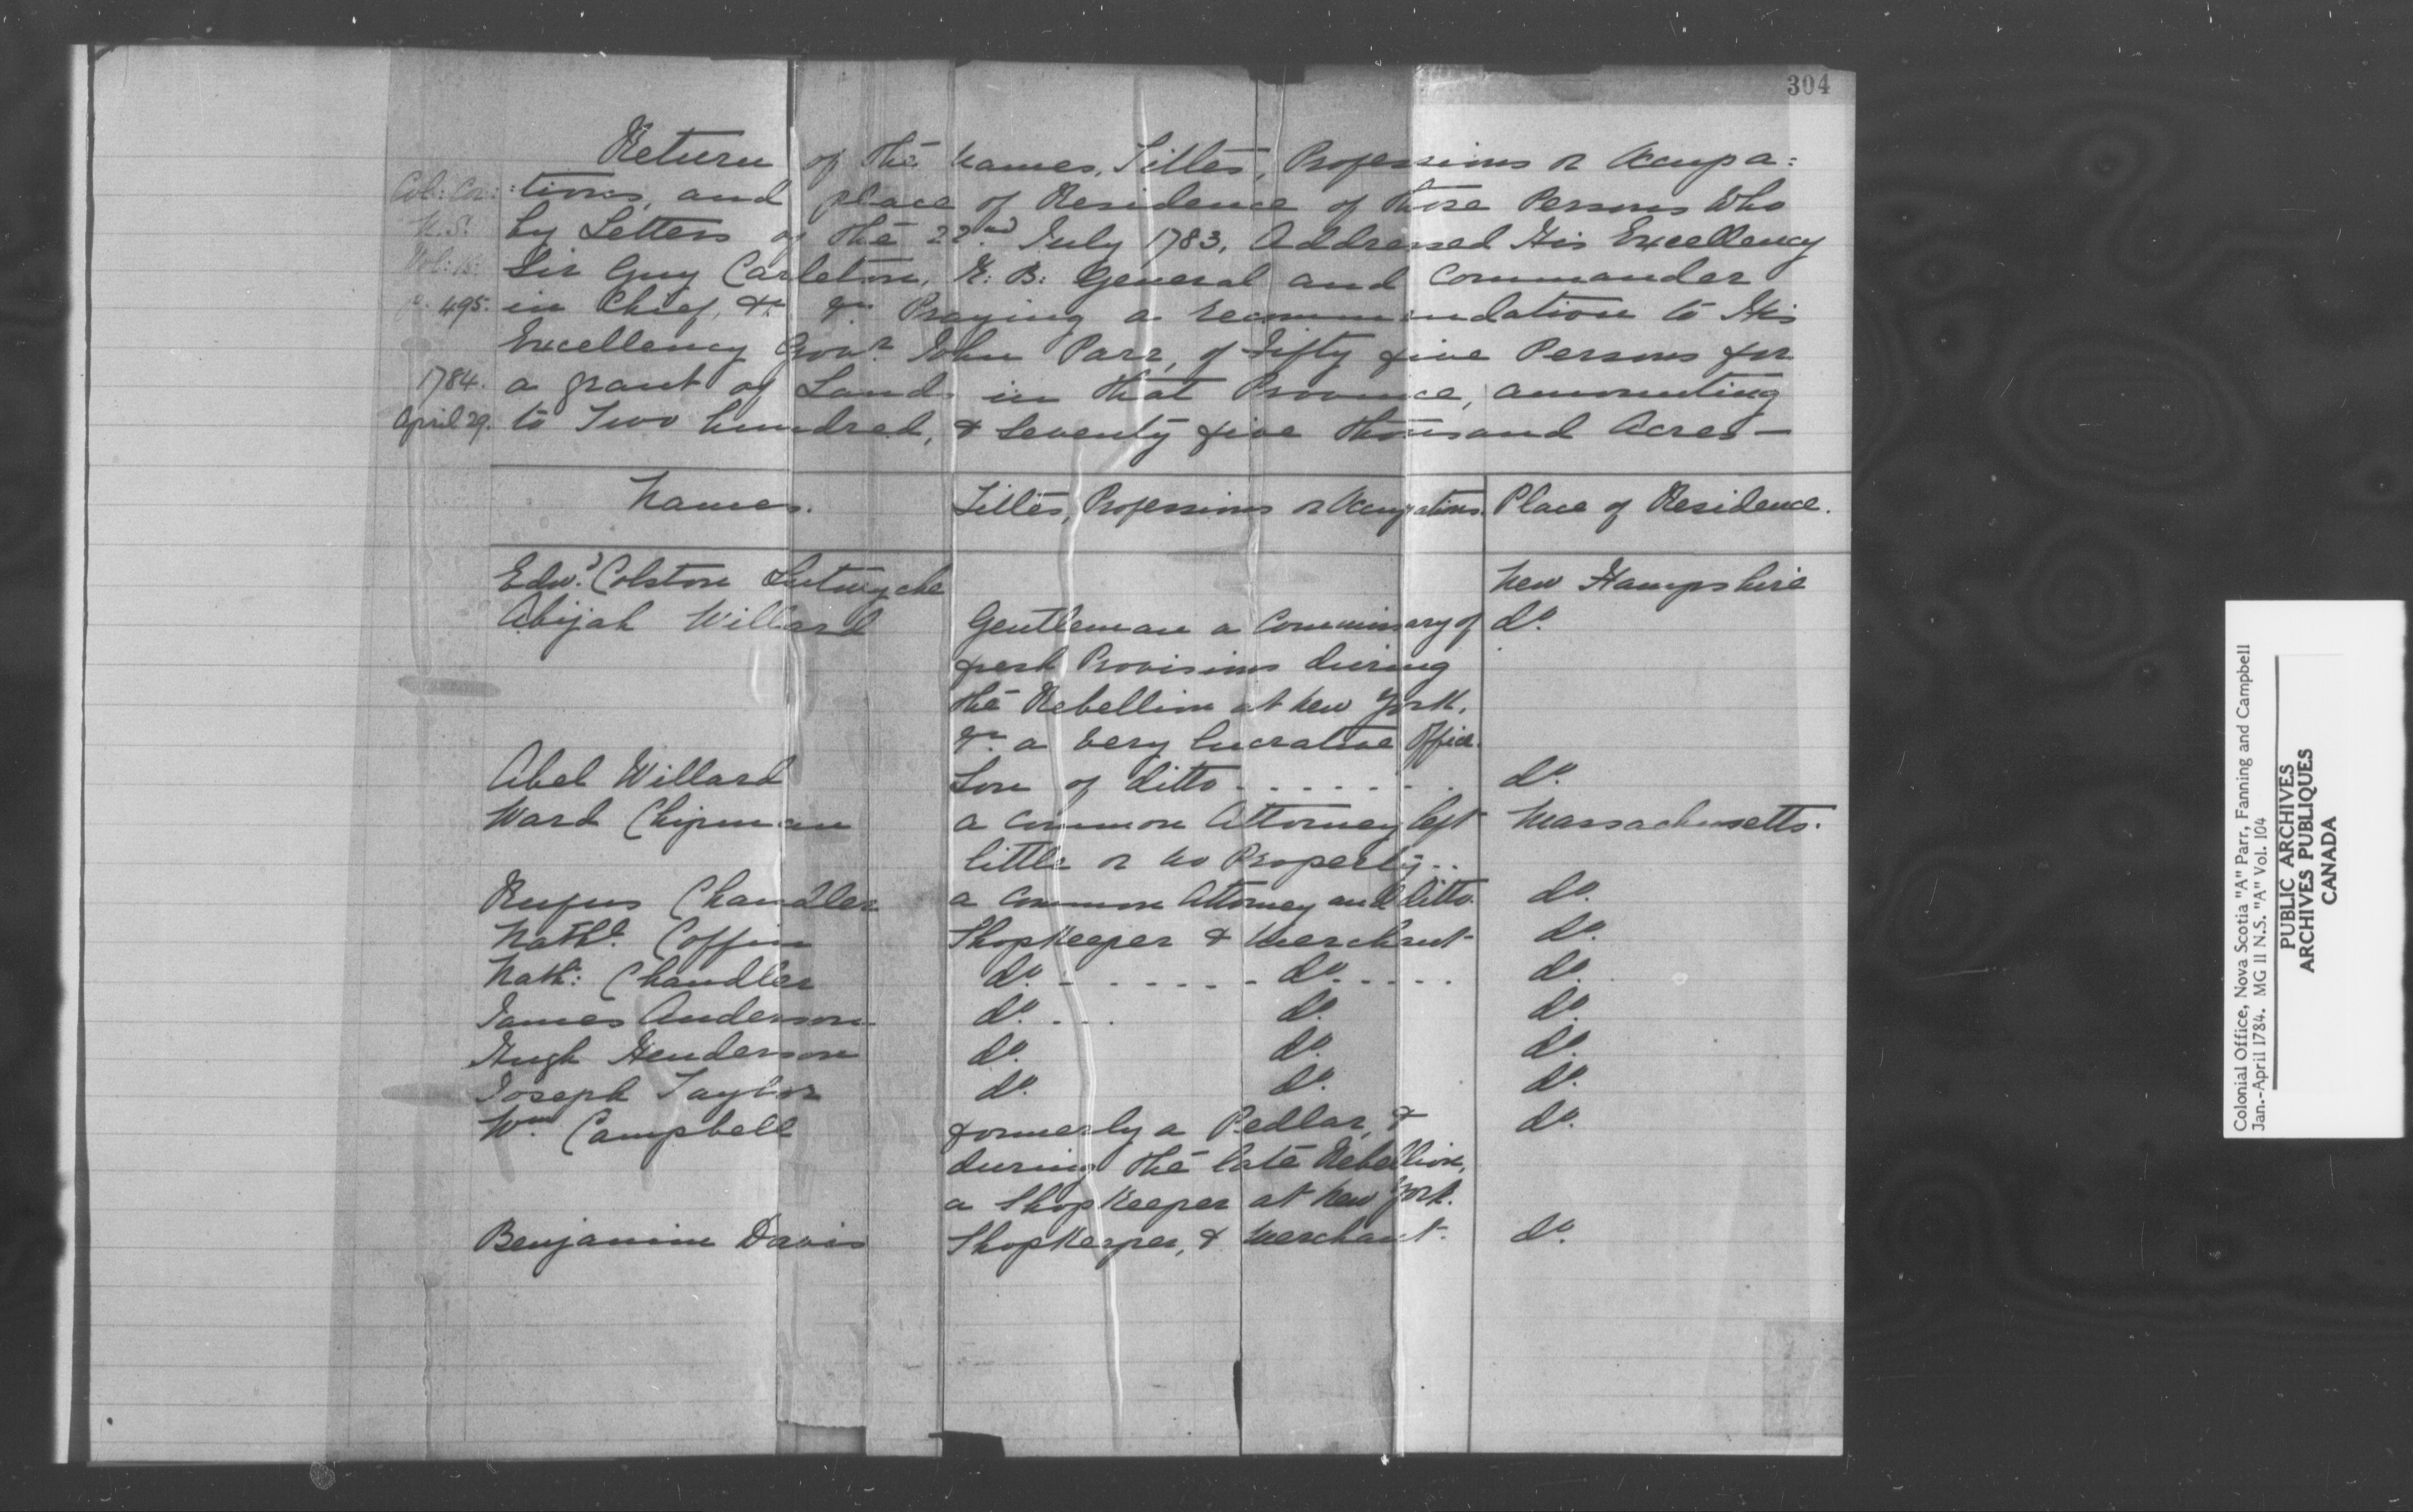 304
Return of the Names, Titles, Professions or Occupa:
Col: Cor: :tions, and place of Residence of those Persons Who
N.S. by Letters of the 22nd July 1783, Addressed His Excellency
Vol: 15: Sir Guy Carleton, K: B: General and Commander
p. 495. in Chief, &c &c Praying a recommendation to His
Excellency Govr. John Parr, of Fifty five Persons for
1784. a grant of Lands in that Province, amounting
April 29. to Two hundred, & Seventy five thousand Acres—
Names. Titles, Professions or Occupations. Place of Residence.
Edwd. Colston Lutwyche New Hampshire
Abijah Willard Gentleman a Commissary of do.
fresh Provisions during
the Rebellion at New York.
&c. a very lucrative Office.
Abel Willard Son of ditto . . . . . . . do.
Ward Chipman a Common Attorney left Massachusetts.
little or no Property . .
Rufus Chandler a Common Attorney and ditto. do.
Nathl. Coffin Shopkeeper & Merchant do.
Nath: Chandler do. . . . . . . do. . . . . do.
James Anderson do. . . . do. do.
Hugh Henderson do. do. do.
Joseph Taylor do. do. do.
Wm. Campbell formerly a Pedlar, & do.
during the late Rebellion,
a Shopkeeper at New York.
Benjamin Davis Shopkeeper, & Merchant. do.
Colonial Office, Nova Scotia "A" Parr, Fanning and Campbell
Jan.-April 1784. MG 11 N.S. "A" Vol. 104
PUBLIC ARCHIVES
ARCHIVES PUBLIQUES
CANADA